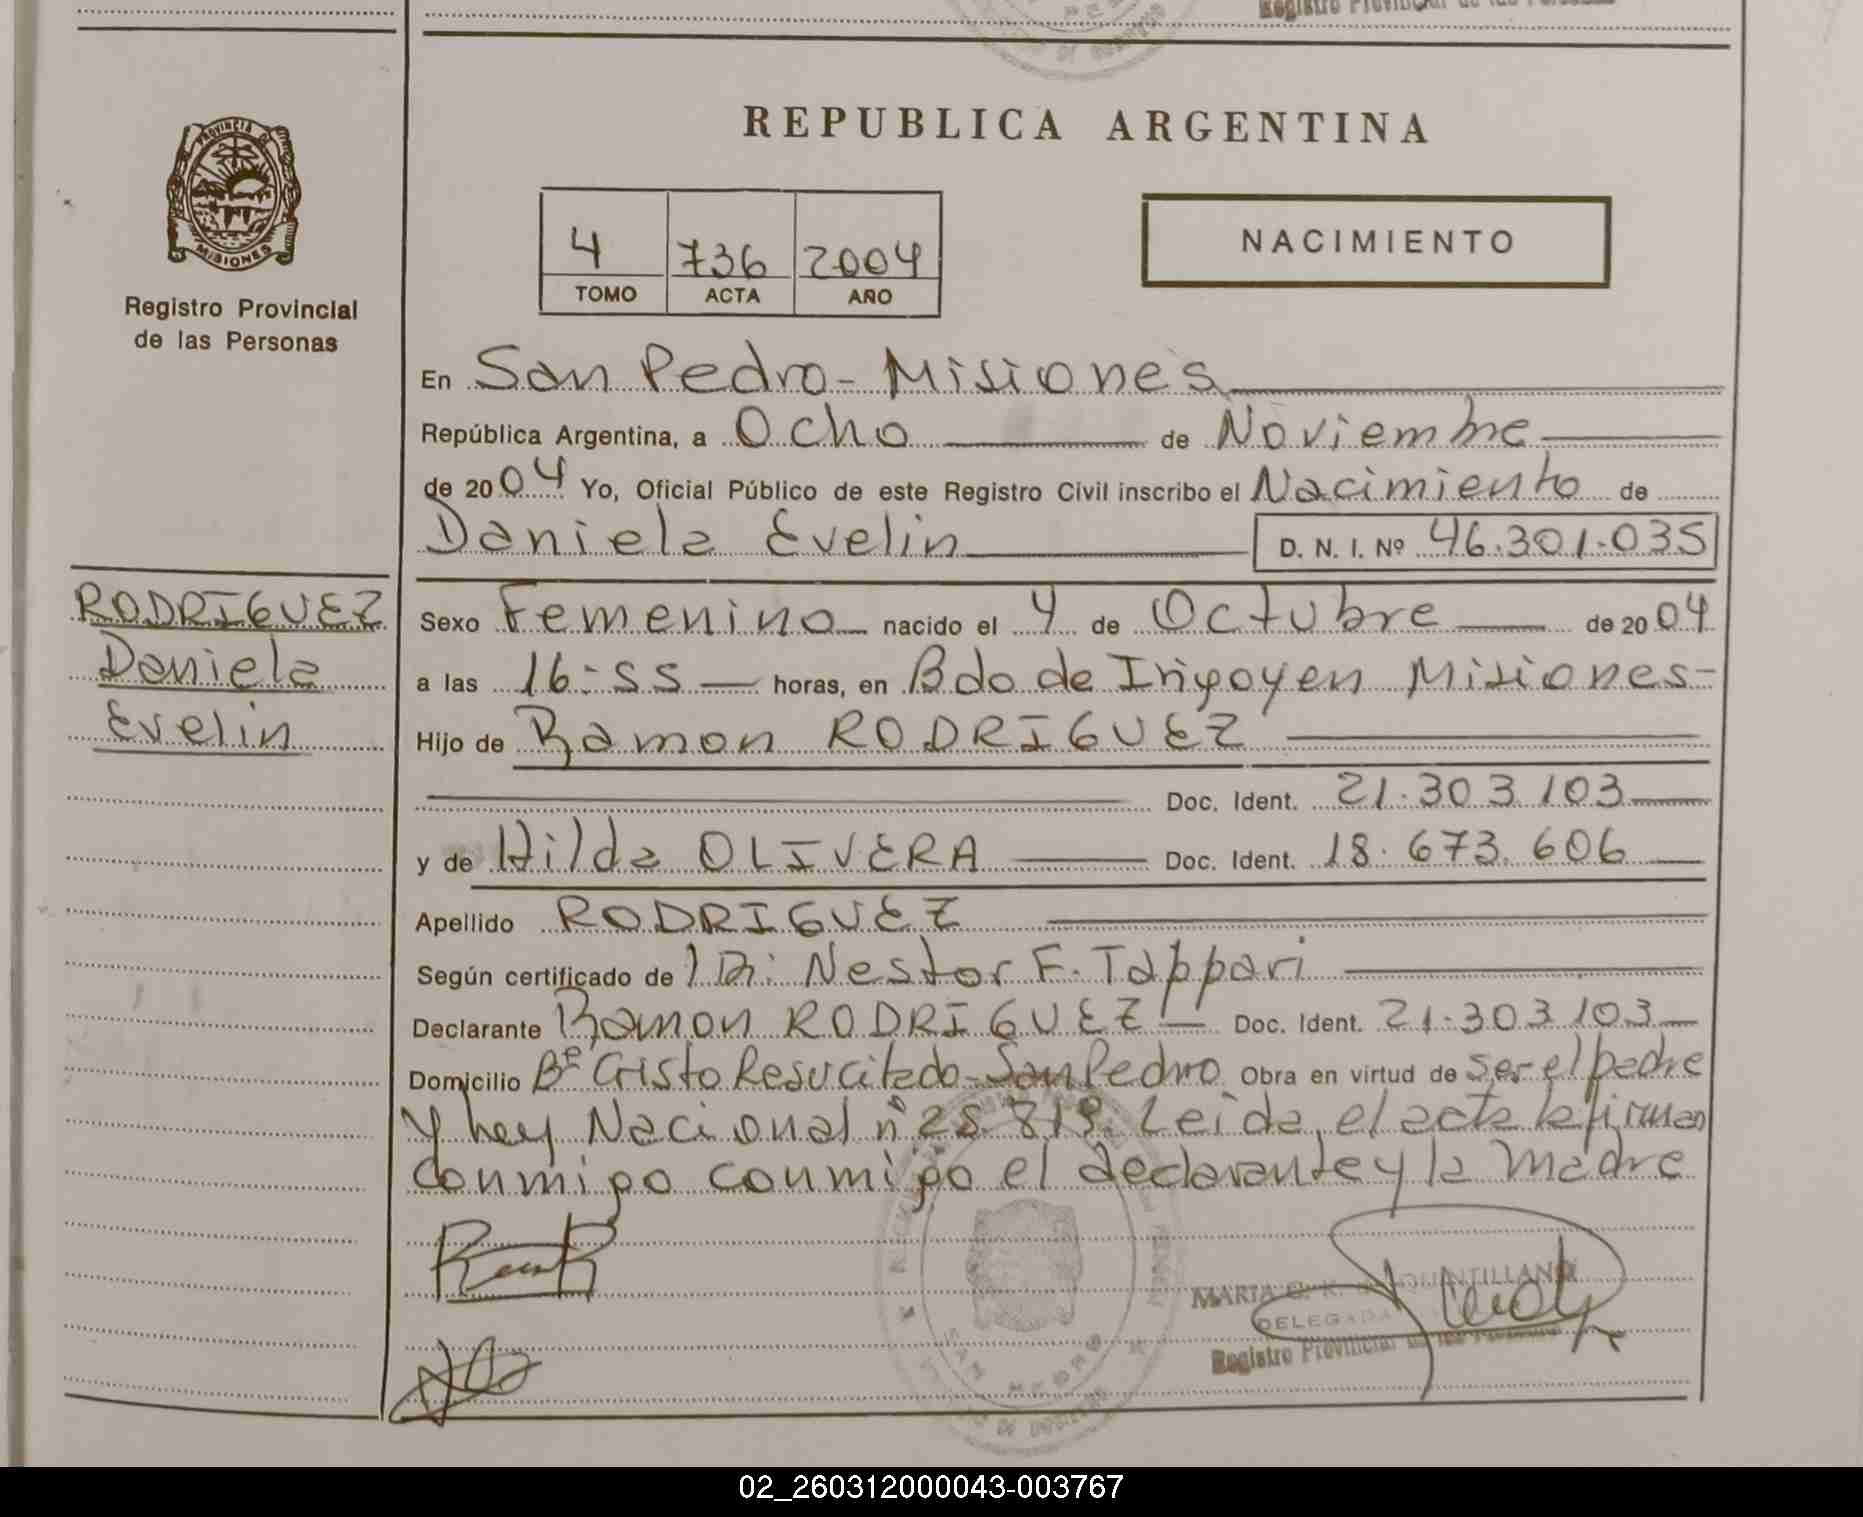 Registro Provincial de las Personas
REPUBLICA ARGENTINA
PROVINCIA DE
MISIONES
Registro Provincial
de las Personas
4 736 2004
TOMO ACTA AÑO
NACIMIENTO
En San Pedro - Misiones
República Argentina, a Ocho de Noviembre
de 2004 Yo, Oficial Público de este Registro Civil inscribo el Nacimiento de
Daniela Evelin D. N. I. Nº 46.301.035
RODRIGUEZ
Daniela
Evelin
Sexo Femenino nacido el 4 de Octubre de 2004
a las 16:55 horas, en Bdo de Irigoyen Misiones-
Hijo de Ramon RODRIGUEZ
Doc. Ident. 21.303.103
y de Hilda OLIVERA Doc. Ident. 18.673.606
Apellido RODRIGUEZ
Según certificado de Nestor F. Tappari
Declarante Ramon RODRIGUEZ Doc. Ident. 21.303.103
Domicilio Bº Cristo Resucitado - San Pedro Obra en virtud de ser el padre
y ley Nacional nº 25.819. Leida el acta la firman
conmigo conmigo el declarante y la madre
SAN PEDRO
MARIA QUINTILLAN
DELEGADA
Registro Provincial de las Personas
02_260312000043-003767